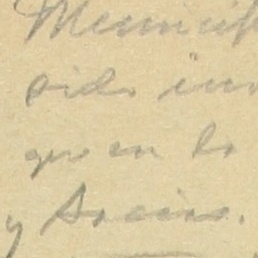 Municip
sido inv
que en la
y Socios.